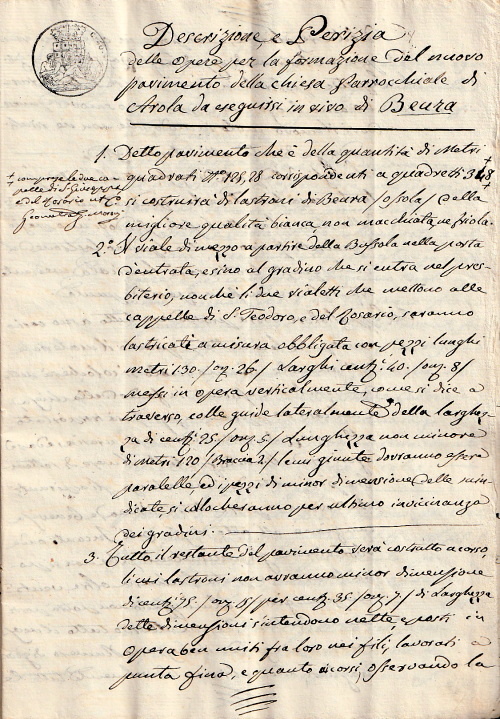 Descrizione, e Perizia
delle opere per la formazione del nuovo
pavimento della chiesa Parrocchiale di
Arola da eseguirsi in vivo di Beura
1. Detto pavimento che è della quantità di Metri
quadrati N.º 128,28 corrispondenti a quadretti 348 +
si costruirà di lastroni di Beura /ossola/ della
migliore qualità bianca, non macchiata, ne friola.
+ comprese le due ca-
pelle di S. Giuseppe
e del Rosario
2.º Il viale di mezzo a partire dalla Bussola nella porta
d'entrata, e sino al gradino che si entra nel pres-
biterio, nonchè li due vialetti che mettono alle
cappelle di S. Teodoro, e del Rosario, saranno
lastricati a misura obbligata con pezzi lunghi
metri 1 30. /onz. 26/ Larghi centi 40. /onz. 8/
messi in opera verticalmente, come si dice a
traverso, colle guide lateralmente della largh-
za di centi 25 /onz. 5/ Lunghezza non minore
di Metri 1 20 /Braccia 2/ le cui giunte dovranno essere
paralelle, ed i pezzi di minor dimensione delle sun-
dicate, si collocheranno per ultimo in vicinanza
dei gradini.
3. Tutto il restante del pavimento serà costrutto a corso,
li cui lastroni non avranno minor dimensione
di centi 75. /onz. 15/ per centi 35 /onz. 7/ di Larghezza
dette dimensioni s'intendono nette e posti in
opera ben uniti fra loro nei fili, lavorati a
punta fina, e quanto ai corsi, osservando la